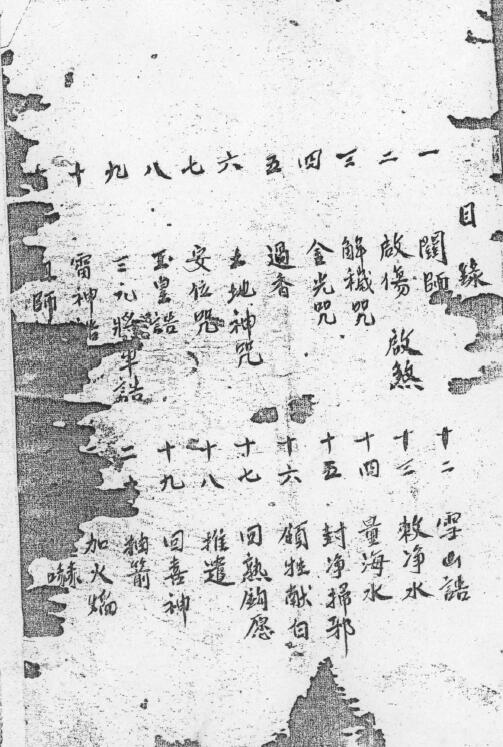 目錄
一 關師
二 啟傷 啟煞
三 解穢咒
四 金光咒
五 過香
六 土地神咒
七 安位咒
八 玉皇誥
九 三元將軍誥
十 雷神誥
師
十二 雪山誥
十三 敕净水
十四 量海水
十五 封净掃邪
十六 領牲献白
十七 回熟鈎愿
十八 推遣
十九 回喜神
二十 抽箭
加火焰